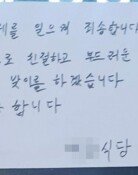 를 일으켜 죄송합니다
로 친절하고 부드러운
맞이를 하겠습니다
합니다
식당